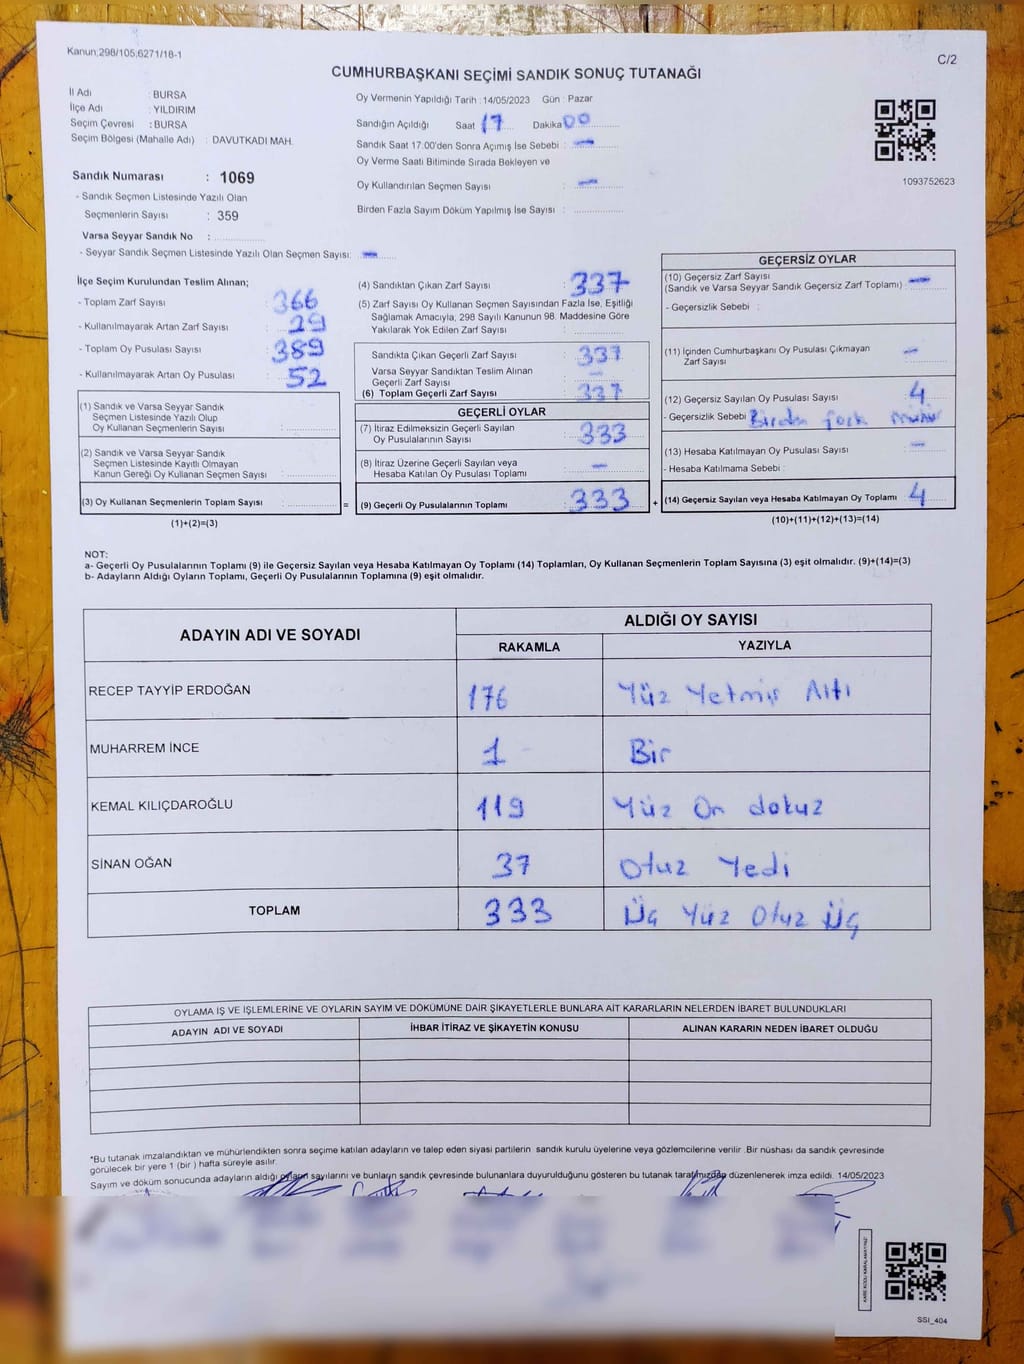 Kanun;298/105,6271/18-1
C/2
CUMHURBAŞKANI SEÇİMİ SANDIK SONUÇ TUTANAĞI
İl Adı : BURSA
İlçe Adı : YILDIRIM
Seçim Çevresi : BURSA
Seçim Bölgesi (Mahalle Adı) : DAVUTKADI MAH.
Sandık Numarası : 1069
- Sandık Seçmen Listesinde Yazılı Olan
Seçmenlerin Sayısı : 359
Varsa Seyyar Sandık No :
- Seyyar Sandık Seçmen Listesinde Yazılı Olan Seçmen Sayısı: —
Oy Vermenin Yapıldığı Tarih : 14/05/2023 Gün : Pazar
Sandığın Açıldığı Saat 17 Dakika 00
Sandık Saat 17.00'den Sonra Açımış İse Sebebi : —
Oy Verme Saati Bitiminde Sırada Bekleyen ve
Oy Kullandırılan Seçmen Sayısı : —
Birden Fazla Sayım Döküm Yapılmış İse Sayısı :
1093752623
İlçe Seçim Kurulundan Teslim Alınan;
- Toplam Zarf Sayısı : 366
- Kullanılmayarak Artan Zarf Sayısı : 29
- Toplam Oy Pusulası Sayısı : 389
- Kullanılmayarak Artan Oy Pusulası : 52
(1) Sandık ve Varsa Seyyar Sandık
Seçmen Listesinde Yazılı Olup
Oy Kullanan Seçmenlerin Sayısı :
(2) Sandık ve Varsa Seyyar Sandık
Seçmen Listesinde Kayıtlı Olmayan
Kanun Gereği Oy Kullanan Seçmen Sayısı :
(3) Oy Kullanan Seçmenlerin Toplam Sayısı :
=
(1)+(2)=(3)
(4) Sandıktan Çıkan Zarf Sayısı : 337
(5) Zarf Sayısı Oy Kullanan Seçmen Sayısından Fazla İse, Eşitliği
Sağlamak Amacıyla, 298 Sayılı Kanunun 98. Maddesine Göre
Yakılarak Yok Edilen Zarf Sayısı :
Sandıkta Çıkan Geçerli Zarf Sayısı : 337
Varsa Seyyar Sandıktan Teslim Alınan
Geçerli Zarf Sayısı : —
(6) Toplam Geçerli Zarf Sayısı : 337
GEÇERLİ OYLAR
(7) İtiraz Edilmeksizin Geçerli Sayılan
Oy Pusulalarının Sayısı : 333
(8) İtiraz Üzerine Geçerli Sayılan veya
Hesaba Katılan Oy Pusulası Toplamı : —
(9) Geçerli Oy Pusulalarının Toplamı : 333
+
GEÇERSİZ OYLAR
(10) Geçersiz Zarf Sayısı
(Sandık ve Varsa Seyyar Sandık Geçersiz Zarf Toplamı) : —
- Geçersizlik Sebebi :
(11) İçinden Cumhurbaşkanı Oy Pusulası Çıkmayan
Zarf Sayısı : —
(12) Geçersiz Sayılan Oy Pusulası Sayısı : 4
- Geçersizlik Sebebi : Birden fazla mühür
(13) Hesaba Katılmayan Oy Pusulası Sayısı : —
- Hesaba Katılmama Sebebi :
(14) Geçersiz Sayılan veya Hesaba Katılmayan Oy Toplamı : 4
(10)+(11)+(12)+(13)=(14)
NOT:
a- Geçerli Oy Pusulalarının Toplamı (9) ile Geçersiz Sayılan veya Hesaba Katılmayan Oy Toplamı (14) Toplamları, Oy Kullanan Seçmenlerin Toplam Sayısına (3) eşit olmalıdır. (9)+(14)=(3)
b- Adayların Aldığı Oyların Toplamı, Geçerli Oy Pusulalarının Toplamına (9) eşit olmalıdır.
ADAYIN ADI VE SOYADI
ALDIĞI OY SAYISI
RAKAMLA YAZIYLA
RECEP TAYYİP ERDOĞAN 176 Yüz Yetmiş Altı
MUHARREM İNCE 1 Bir
KEMAL KILIÇDAROĞLU 119 Yüz On dokuz
SİNAN OĞAN 37 Otuz Yedi
TOPLAM 333 Üç Yüz Otuz Üç
OYLAMA İŞ VE İŞLEMLERİNE VE OYLARIN SAYIM VE DÖKÜMÜNE DAİR ŞİKAYETLERLE BUNLARA AİT KARARLARIN NELERDEN İBARET BULUNDUKLARI
ADAYIN ADI VE SOYADI İHBAR İTİRAZ VE ŞİKAYETİN KONUSU ALINAN KARARIN NEDEN İBARET OLDUĞU
*Bu tutanak imzalandıktan ve mühürlendikten sonra seçime katılan adayların ve talep eden siyasi partilerin sandık kurulu üyelerine veya gözlemcilerine verilir. Bir nüshası da sandık çevresinde
görülecek bir yere 1 (bir ) hafta süreyle asılır.
Sayım ve döküm sonucunda adayların aldığı oyların sayılarını ve bunların sandık çevresinde bulunanlara duyurulduğunu gösteren bu tutanak tarafımızdan düzenlenerek imza edildi. 14/05/2023
SSI_404